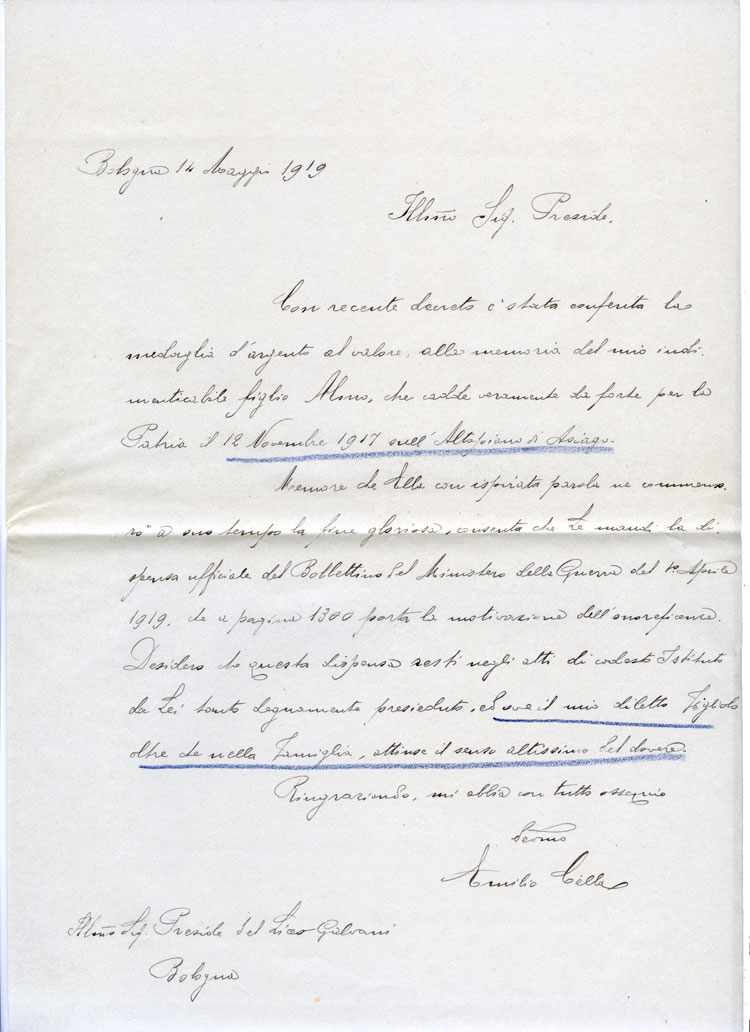 Bologna 14 Maggio 1919
Illmo Sig. Preside,
Con recente decreto è stata conferita la
medaglia d'argento al valore, alla memoria del mio indi
menticabile figlio Almo, che cadde veramente da forte per la
Patria il 12 Novembre 1917 sull'Altopiano di Asiago.
Memore che Ella con ispirata parola ne commemo
rò a suo tempo la fine gloriosa, consenta che Le mandi la di
spensa ufficiale del Bollettino del Ministero della Guerra del 1º Aprile
1919, che a pagina 1300 porta la motivazione dell'onorificenza.
Desidero che questa dispensa resti negli atti di codesto Istituto
da Lei tanto degnamente presieduto, ed ove il mio diletto Figliolo
oltre che nella Famiglia, attinse il senso altissimo del dovere.
Ringraziando, mi abbia con tutto ossequio
Devmo
Emilio Cella
Illmo Sig. Preside del Liceo Galvani
Bologna